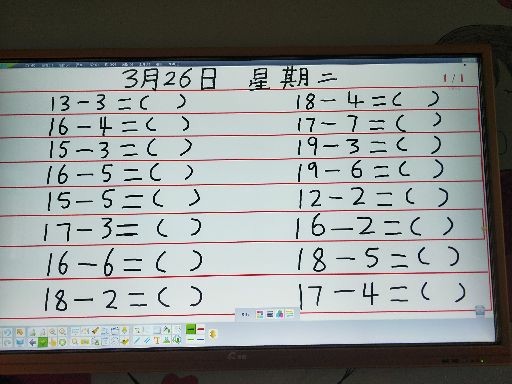 3月26日 星期二
1/1
13-3=( ) 18-4=( )
16-4=( ) 17-7=( )
15-3=( ) 19-3=( )
16-5=( ) 19-6=( )
15-5=( ) 12-2=( )
17-3=( ) 16-2=( )
16-6=( ) 18-5=( )
18-2=( ) 17-4=( )